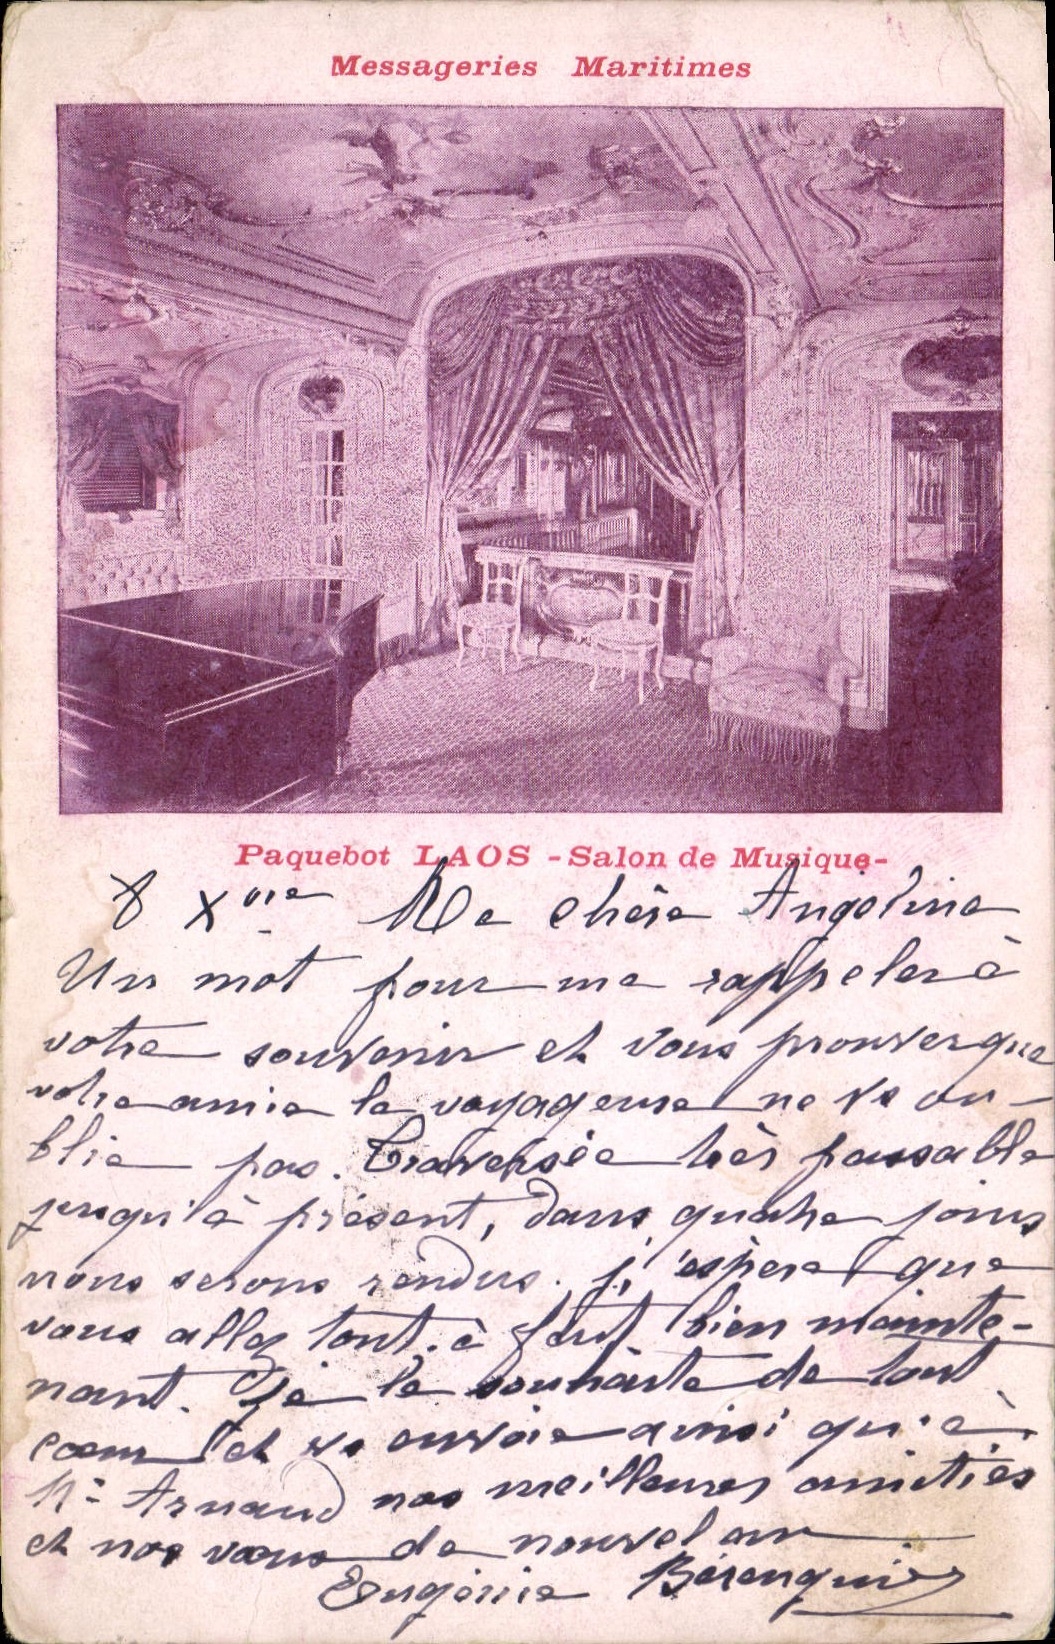 Messageries Maritimes
Paquebot LAOS - Salon de Musique -
8 Xbre Ma chère Angelina
Un mot pour me rappeler à
votre souvenir et vous prouver que
votre amie la voyageuse ne vs ou-
blie pas. Traversée très passable
jusqu'à présent, dans quatre jours
nous serons rendus. j'espère que
vous allez tout à fait bien mainte-
nant. Je le souhaite de tout
cœur et vs envoie ainsi qu'à
Mr Arnaud nos meilleures amitiés
et nos vœux de nouvel an
Eugénie Bérenguier